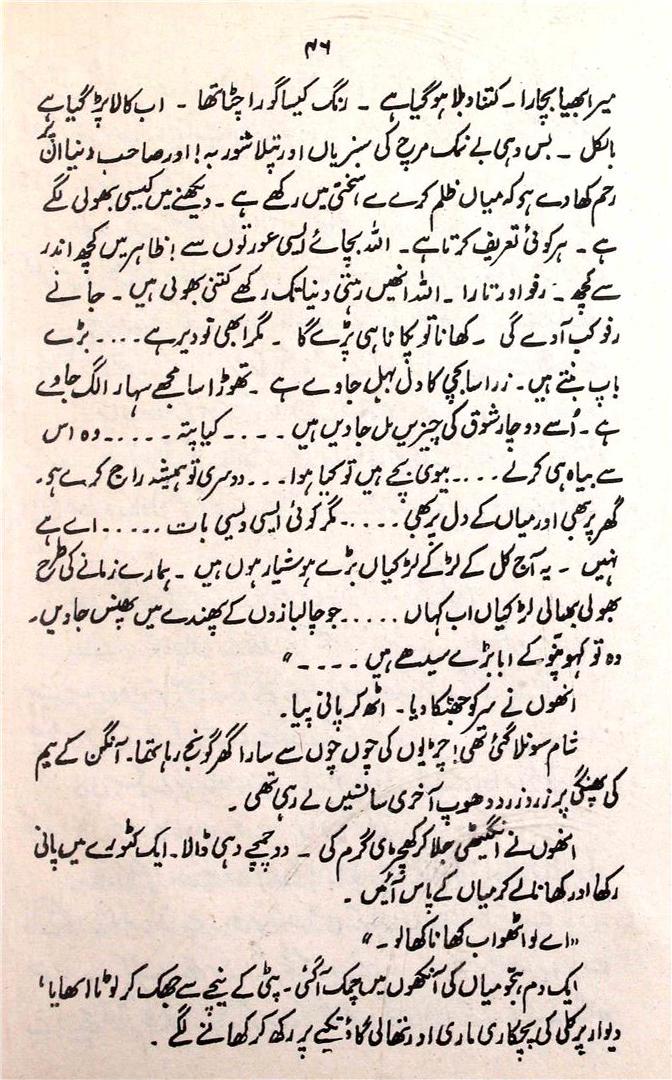 ۴۶
میرا بھیا بچارا ۔ کتنا دبلا ہو گیا ہے ۔ رنگ کیسا گورا چٹا تھا ۔ اب کالا پڑ گیا ہے
بالکل ۔ بس وہی بے نمک مرچ کی سبزیاں اور پتلا شوربہ! اور صاحب دنیا ان پر
رحم کھا دے ہو کہ میاں ظلم کرے ہے سختی میں رکھے ہے ۔ دیکھنے میں کیسی بھولی لگے
ہے ۔ ہر کوئی تعریف کرتا ہے ۔ اللہ بچائے ایسی عورتوں سے! ظاہر میں کچھ اندر
سے کچھ ۔ رفو اور تارا ۔ اللہ انھیں رہتی دنیا تک رکھے کتنی بھولی ہیں ۔ جانے
رفو کب آوے گی ۔ کھانا تو پکانا ہی پڑے گا ۔ مگر ابھی تو دیر ہے .... بڑے
باپ بنتے ہیں ۔ ذرا سا بچی کا دل بہل جاوے ہے ۔ تھوڑا سا مجھے سہارا الگ ہو جاوے
ہے ۔ اُسے دو چار شوق کی چیزیں مل جاویں ہیں .... کیا پتہ ..... وہ اس
سے بیاہ ہی کرلے .... بیوی بچے ہیں تو کیا ہوا ... دوسری تو ہمیشہ راج کرے ہے ۔
گھر پر بھی اور میاں کے دل پر بھی ..... مگر کوئی ایسی ویسی بات ..... اے ہے
نہیں ۔ یہ آج کل کے لڑکے لڑکیاں بڑے ہوشیار ہوں ہیں ۔ ہمارے زمانے کی طرح
بھولی بھالی لڑکیاں اب کہاں ..... جو چالبازوں کے پھندے میں پھنس جاویں ۔
وہ تو کہو ببّو کے ابا بڑے سیدھے ہیں ....“
انھوں نے سر کو جھٹکا دیا ۔ اٹھ کر پانی پیا ۔
شام سونلا گئی تھی! چڑیوں کی چوں چوں سے سارا گھر گونج رہا تھا ۔ آنگن کے نیم
کی پھنگی پر زرد زرد دھوپ آخری سانسیں لے رہی تھی ۔
انھوں نے انگیٹھی جلا کر کھچڑی گرم کی ۔ دو چمچے دہی ڈالا ۔ ایک کٹورے میں پانی
رکھا اور کھانا لے کر میاں کے پاس آئیں ۔
”اے لو اٹھو اب کھانا کھا لو ۔“
ایک دم میاں کی آنکھوں میں چمک آ گئی ۔ پٹی کے نیچے سے جھک کر لوٹا اٹھایا،
دیوار پر کلی کی پچکاری ماری اور تھالی گاؤ تکیے پر رکھ کر کھانے لگے ۔